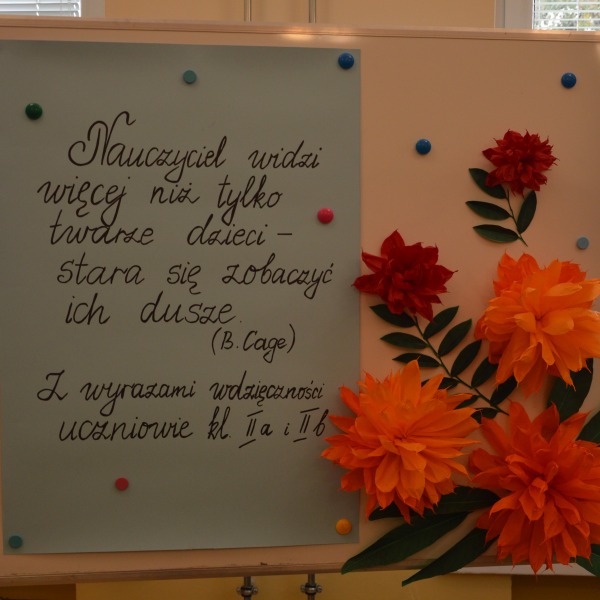 Nauczyciel widzi
więcej niż tylko
twarze dzieci –
stara się zobaczyć
ich dusze.
(B. Cage)
Z wyrazami wdzięczności
uczniowie kl. II a i II b